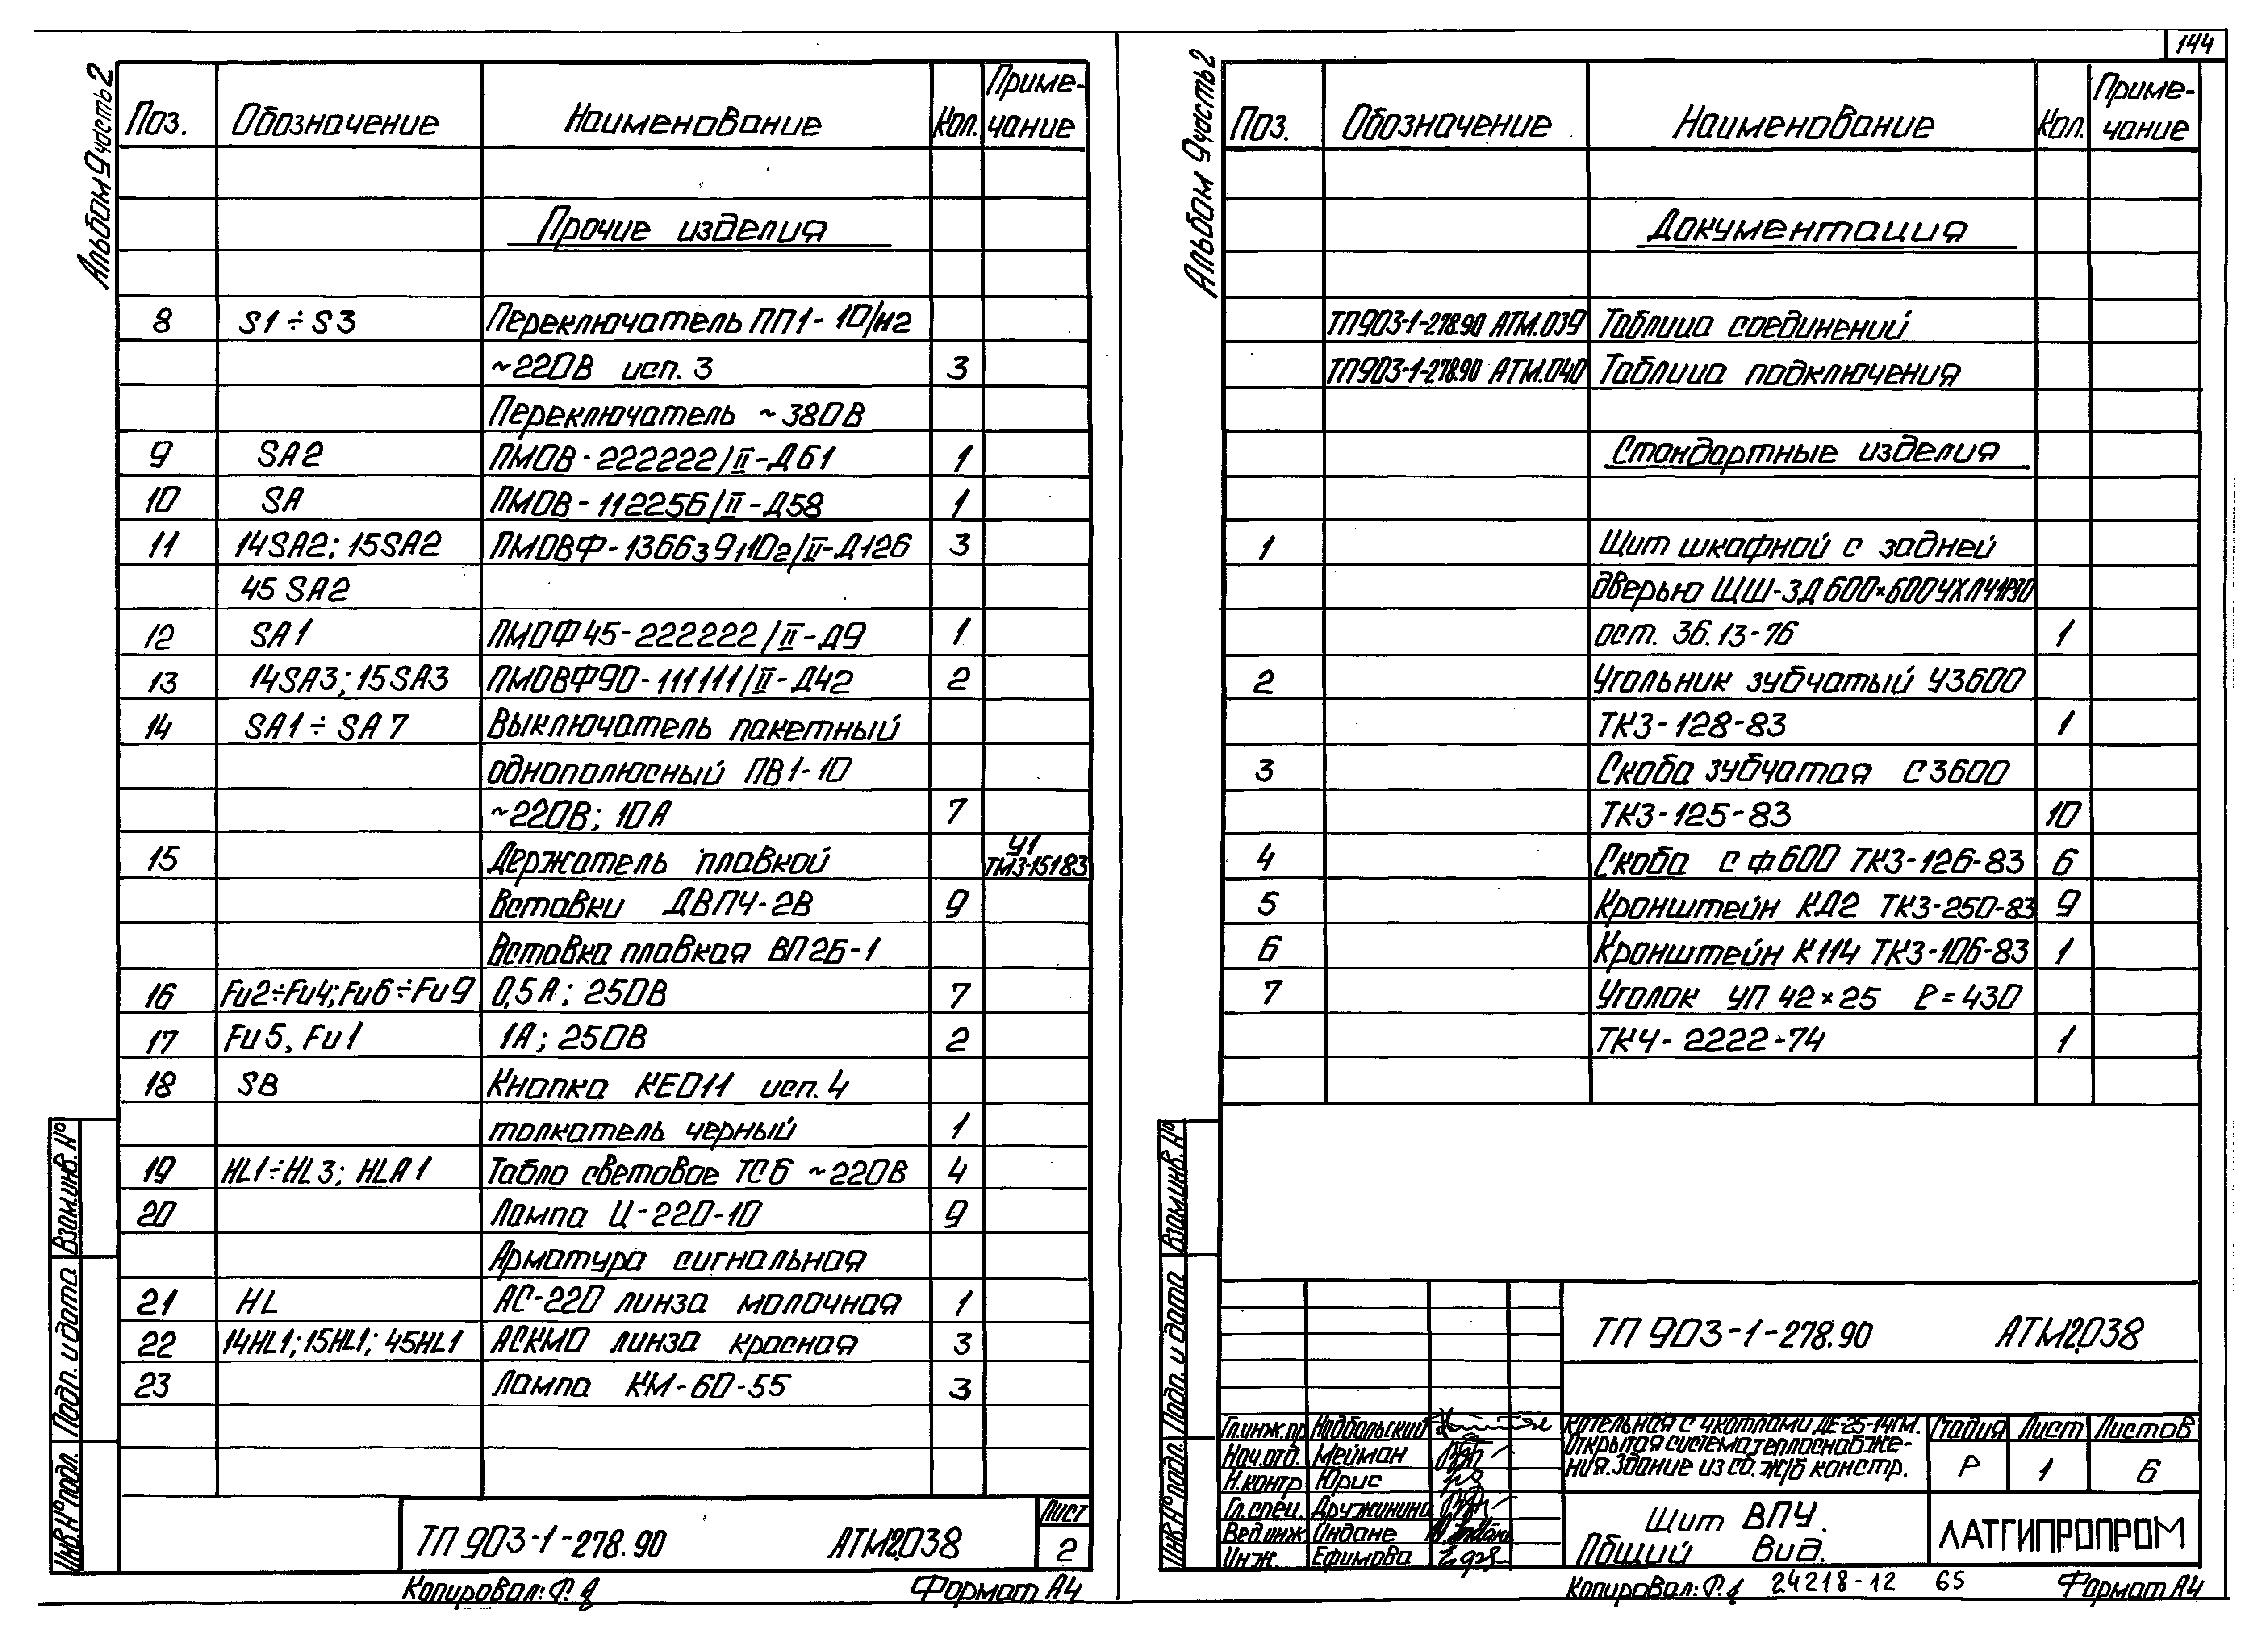 144
Альбом 9 часть 2
Поз. Обозначение Наименование Кол. Приме-
чание
Прочие изделия
8 S1÷S3 Переключатель ПП1-10/н2
~220В исп. 3 3
Переключатель ~380В
9 SA2 ПМОВ-222222/II-Д61 1
10 SA ПМОВ-112256/II-Д58 1
11 14SA2; 15SA2 ПМОВФ-1366391102/II-Д126 3
45SA2
12 SA1 ПМОФ45-222222/II-Д9 1
13 14SA3; 15SA3 ПМОВФ90-111111/II-Д42 2
14 SA1÷SA7 Выключатель пакетный
однополюсный ПВ1-10
~220В; 10А 7
15 Держатель плавкой У1
ТМ3-151-83
вставки ДВП4-2В 9
Вставка плавкая ВП2Б-1
16 Fu2÷Fu4; Fu6÷Fu9 0,5А; 250В 7
17 Fu5, Fu1 1А; 250В 2
18 SB Кнопка КЕ011 исп. 4
толкатель черный 1
19 HL1÷HL3; HLA1 Табло световое ТСБ ~220В 4
20 Лампа Ц-220-10 9
Арматура сигнальная
21 HL АС-220 линза молочная 1
22 14HL1; 15HL1; 45HL1 АСКМО линза красная 3
23 Лампа КМ-60-55 3
Взам.инв.№
Подп. и дата
Инв.№ подл.
ТП 903-1-278.90 АТМ2.038
Лист
2
Копировал: Ф. Формат А4
Альбом 9 часть 2
Поз. Обозначение Наименование Кол. Приме-
чание
Документация
ТП903-1-278.90 АТМ.039 Таблица соединений
ТП903-1-278.90 АТМ.040 Таблица подключения
Стандартные изделия
1 Щит шкафной с задней
дверью ЩШ-ЗД 600×600УХЛ4IP30
ост. 36.13-76 1
2 Угольник зубчатый УЗ600
ТК3-128-83 1
3 Скоба зубчатая СЗ600
ТК3-125-83 10
4 Скоба СФ600 ТК3-126-83 6
5 Кронштейн КД2 ТК3-250-83 9
6 Кронштейн К114 ТК3-106-83 1
7 Уголок УП 42×25 ℓ=430
ТК4-2222-74 1
Взам.инв.№
Подп. и дата
Инв.№ подл.
ТП 903-1-278.90 АТМ2.038
Гл.инж.пр Надбольский
Нач.отд. Мейман
Н.контр Юрис
Гл.спец. Дружинина
Вед.инж. Индане
Инж. Ефимова
Котельная с 4 котлами ДЕ-25-14ГМ.
Открытая система теплоснабже-
ния. Здание из сб. ж/б констр.
Стадия Лист Листов
Р 1 6
Щит ВПУ.
Общий вид.
ЛАТГИПРОПРОМ
Копировал: Ф. 24218-12 65 Формат А4